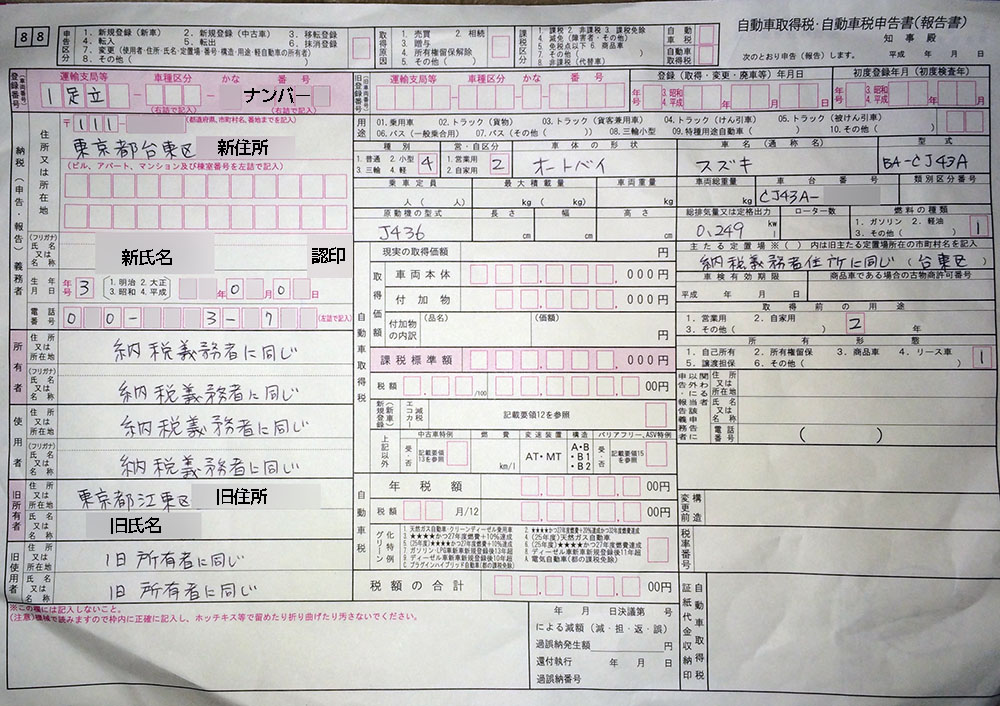 88
申告区分
1. 新規登録(新車) 2. 新規登録(中古車) 3. 移転登録
4. 転入 5. 転出 6. 抹消登録
7. 変更(使用者・住所・氏名・定置場・番号・構造・用途・軽自動車の所有者)
8. その他( )
取得原因
1. 売買 2. 相続
3. 贈与
4. 所有権留保解除
5. その他( )
課税区分
1. 課税 2. 非課税 3. 課税免除
4. 減免(障害者・その他)
5. 免税点以下 6. 商品車
8. 非課税(代替車)
自動車税
自動車取得税
自動車取得税・自動車税申告書(報告書)
知事殿
次のとおり申告(報告)します。 平成 年 月 日
登録番号
(車両番号)
運輸支局等 車種区分 かな 番号
1 足立 ナンバー
(右詰で記入) (右詰で記入)
旧登録番号
運輸支局等 車種区分 かな 番号
登録(取得・変更・廃車等)年月日
年号 3.昭和 4.平成 年 月 日
初度登録年月(初度検査年)
年号 3.昭和 4.平成 年 月
納税(申告・報告)義務者
住所又は所在地
〒111- (都道府県、市町村名、番地までを記入)
東京都台東区 新住所
(ビル、アパート、マンション及び棟室番号を左詰で記入)
(フリガナ)
氏名又は名称
新氏名 認印
生年月日
年号 3 1.明治 2.大正 3.昭和 4.平成 年 0 月 0 日
電話番号
0 0 - 3 - 7 (左詰で記入)
所有者
住所又は所在地
納税義務者に同じ
(フリガナ)
氏名又は名称
納税義務者に同じ
使用者
住所又は所在地
納税義務者に同じ
(フリガナ)
氏名又は名称
納税義務者に同じ
旧所有者
住所又は所在地
東京都江東区 旧住所
氏名又は名称
旧氏名
旧使用者
住所又は所在地
旧所有者に同じ
氏名又は名称
旧所有者に同じ
※この欄には記入しないこと。
(注意)機械で読みますので枠内に正確に記入し、ホッチキス等で留めたり折り曲げたり汚さないでください。
用途
01. 乗用車 02. トラック(貨物) 03. トラック(貨客兼用車) 04. トラック(けん引車) 05. トラック(被けん引車)
06. バス(一般乗合用) 07. バス(その他( )) 08. 三輪小型 09. 特種用途自動車( ) 10. その他( )
種別 営・自区分 車体の形状 車名(通称名) 型式
1. 普通 2. 小型
3. 三輪 4. 軽
4
1. 営業用
2. 自家用
2
オートバイ
スズキ
BA-CJ43A
乗車定員 最大積載量 車両重量 車両総重量 車台番号 類別区分番号
人( 人) kg( kg) kg kg
CJ43A-
原動機の型式 長さ 幅 高さ 総排気量又は定格出力 ローター数 燃料の種類
J436 cm cm cm 0.249 kw l
1. ガソリン 2. 軽油
3. その他( )
1
現実の取得価額 円
主たる定置場※( )内は旧主たる定置場所在の市町村名を記入
納税義務者住所に同じ(台東区)
自動車取得税
取得価額
車両本体 000円
付加物 000円
付加物の内訳 (品名) (価額) 円
課税標準額 000円
税額 /100 00円
車検有効期限
平成 年 月 日
商品車である場合の古物商許可番号
取得前の用途
1. 営業用 2. 自家用
3. その他( )
2
年
所有形態
1. 自己所有 2. 所有権留保 3. 商品車 4. リース車
5. 譲渡担保 6. その他( )
1
新規登録(新車)
エコカー減税
記載要領12を参照
上記以外
中古車特例 燃費 変速装置 構造 バリアフリー、ASV特例
受・否 記載要領13を参照 km/l AT・MT A・B ・B1 ・B2 受・否 記載要領15を参照
住所又は所在地
氏名又は名称
電話番号
( )
自動車税
年税額 00円
税額 月/12 00円
グリーン化特例
税額の合計 00円
変更前構造
税率番号
年 月 日決議第 号
による減額(減・担・返・誤)
過誤納発生額 円
還付執行 年 月 日
過誤納番号
自動車取得税
自動車税
証紙代金収納印